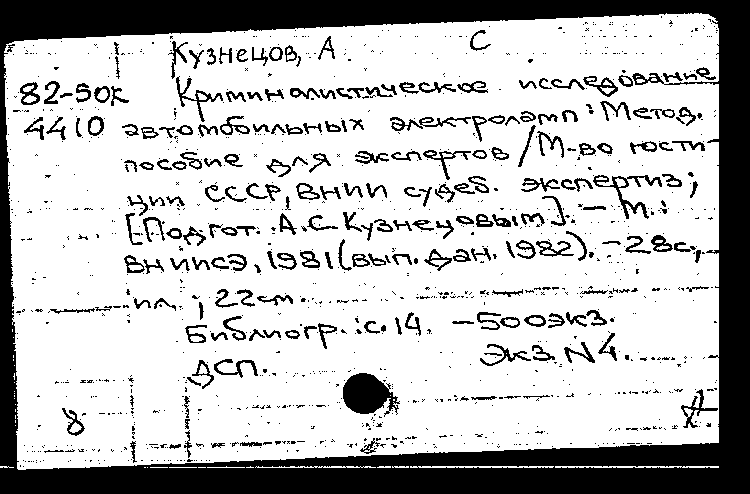 Кузнецов, А. С
82-50к Криминалистическое исследование
4410 автомобильных электроламп: Метод.
пособие для экспертов / М-во юсти-
ции СССР, ВНИИ судеб. экспертиз;
[Подгот. А.С. Кузнецовым]. - М.:
ВНИИСЭ, 1981 (вып. дан. 1982). - 28с.,
ил.; 22см.
Библиогр.: с. 14. - 500экз.
ДСП. Экз. N4.
8